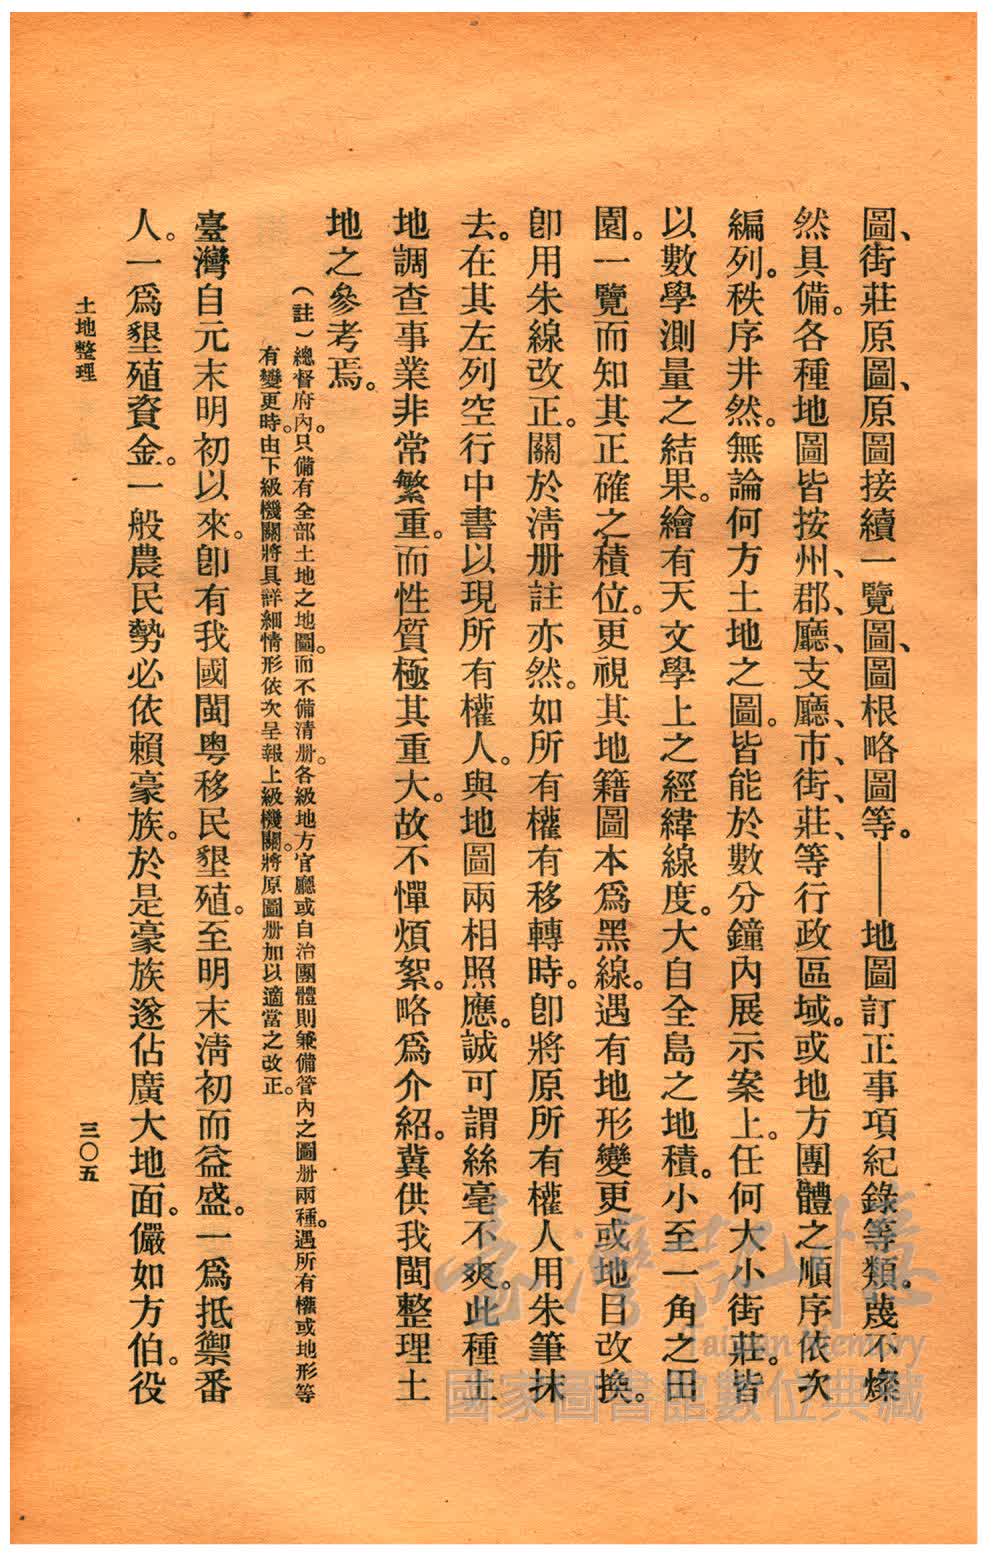 圖、街莊原圖、原圖接續一覽圖、圖根略圖等。——地圖訂正事項紀錄等類。蔑不燦
然具備。各種地圖皆按州、郡、廳、支廳、市、街、莊、等行政區域。或地方團體之順序依次
編列。秩序井然。無論何方土地之圖。皆能於數分鐘內展示案上。任何大小街莊。皆
以數學測量之結果。繪有天文學上之經緯線度。大自全島之地積。小至一角之田
園。一覽而知其正確之積位。更視其地籍圖本爲黑線。遇有地形變更或地目改換。
卽用朱線改正。關於淸册註亦然。如所有權有移轉時。卽將原所有權人用朱筆抹
去。在其左列空行中書以現所有權人。與地圖兩相照應。誠可謂絲毫不爽。此種土
地調查事業非常繁重。而性質極其重大。故不憚煩絮。略爲介紹。冀供我閩整理土
地之參考焉。
（註）總督府內。只備有全部土地之地圖。而不備淸册。各級地方官廳或自治團體則兼備管內之圖册兩種。遇所有權或地形等
有變更時。由下級機關將具詳細情形依次呈報上級機關。將原圖册加以適當之改正。
臺灣自元末明初以來。卽有我國閩粤移民墾殖。至明末淸初而益盛。一爲抵禦番
人。一爲墾殖資金。一般農民勢必依賴豪族。於是豪族遂佔廣大地面。儼如方伯。役
土地整理
三〇五
臺灣記憶
Taiwan Memory
國家圖書館數位典藏